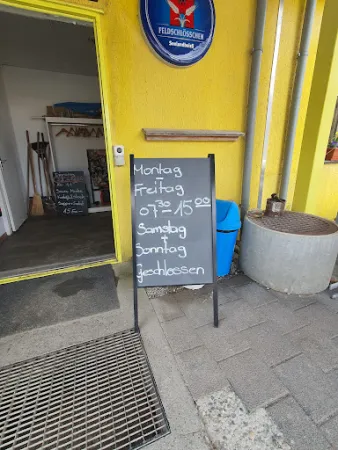 FELDSCHLÖSSCHEN
Montag
-
Freitag
07³⁰-15⁰⁰
Samstag
+
Sonntag
geschlossen